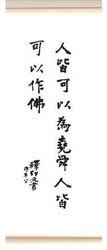 人皆可以為堯舜人皆
可以作佛